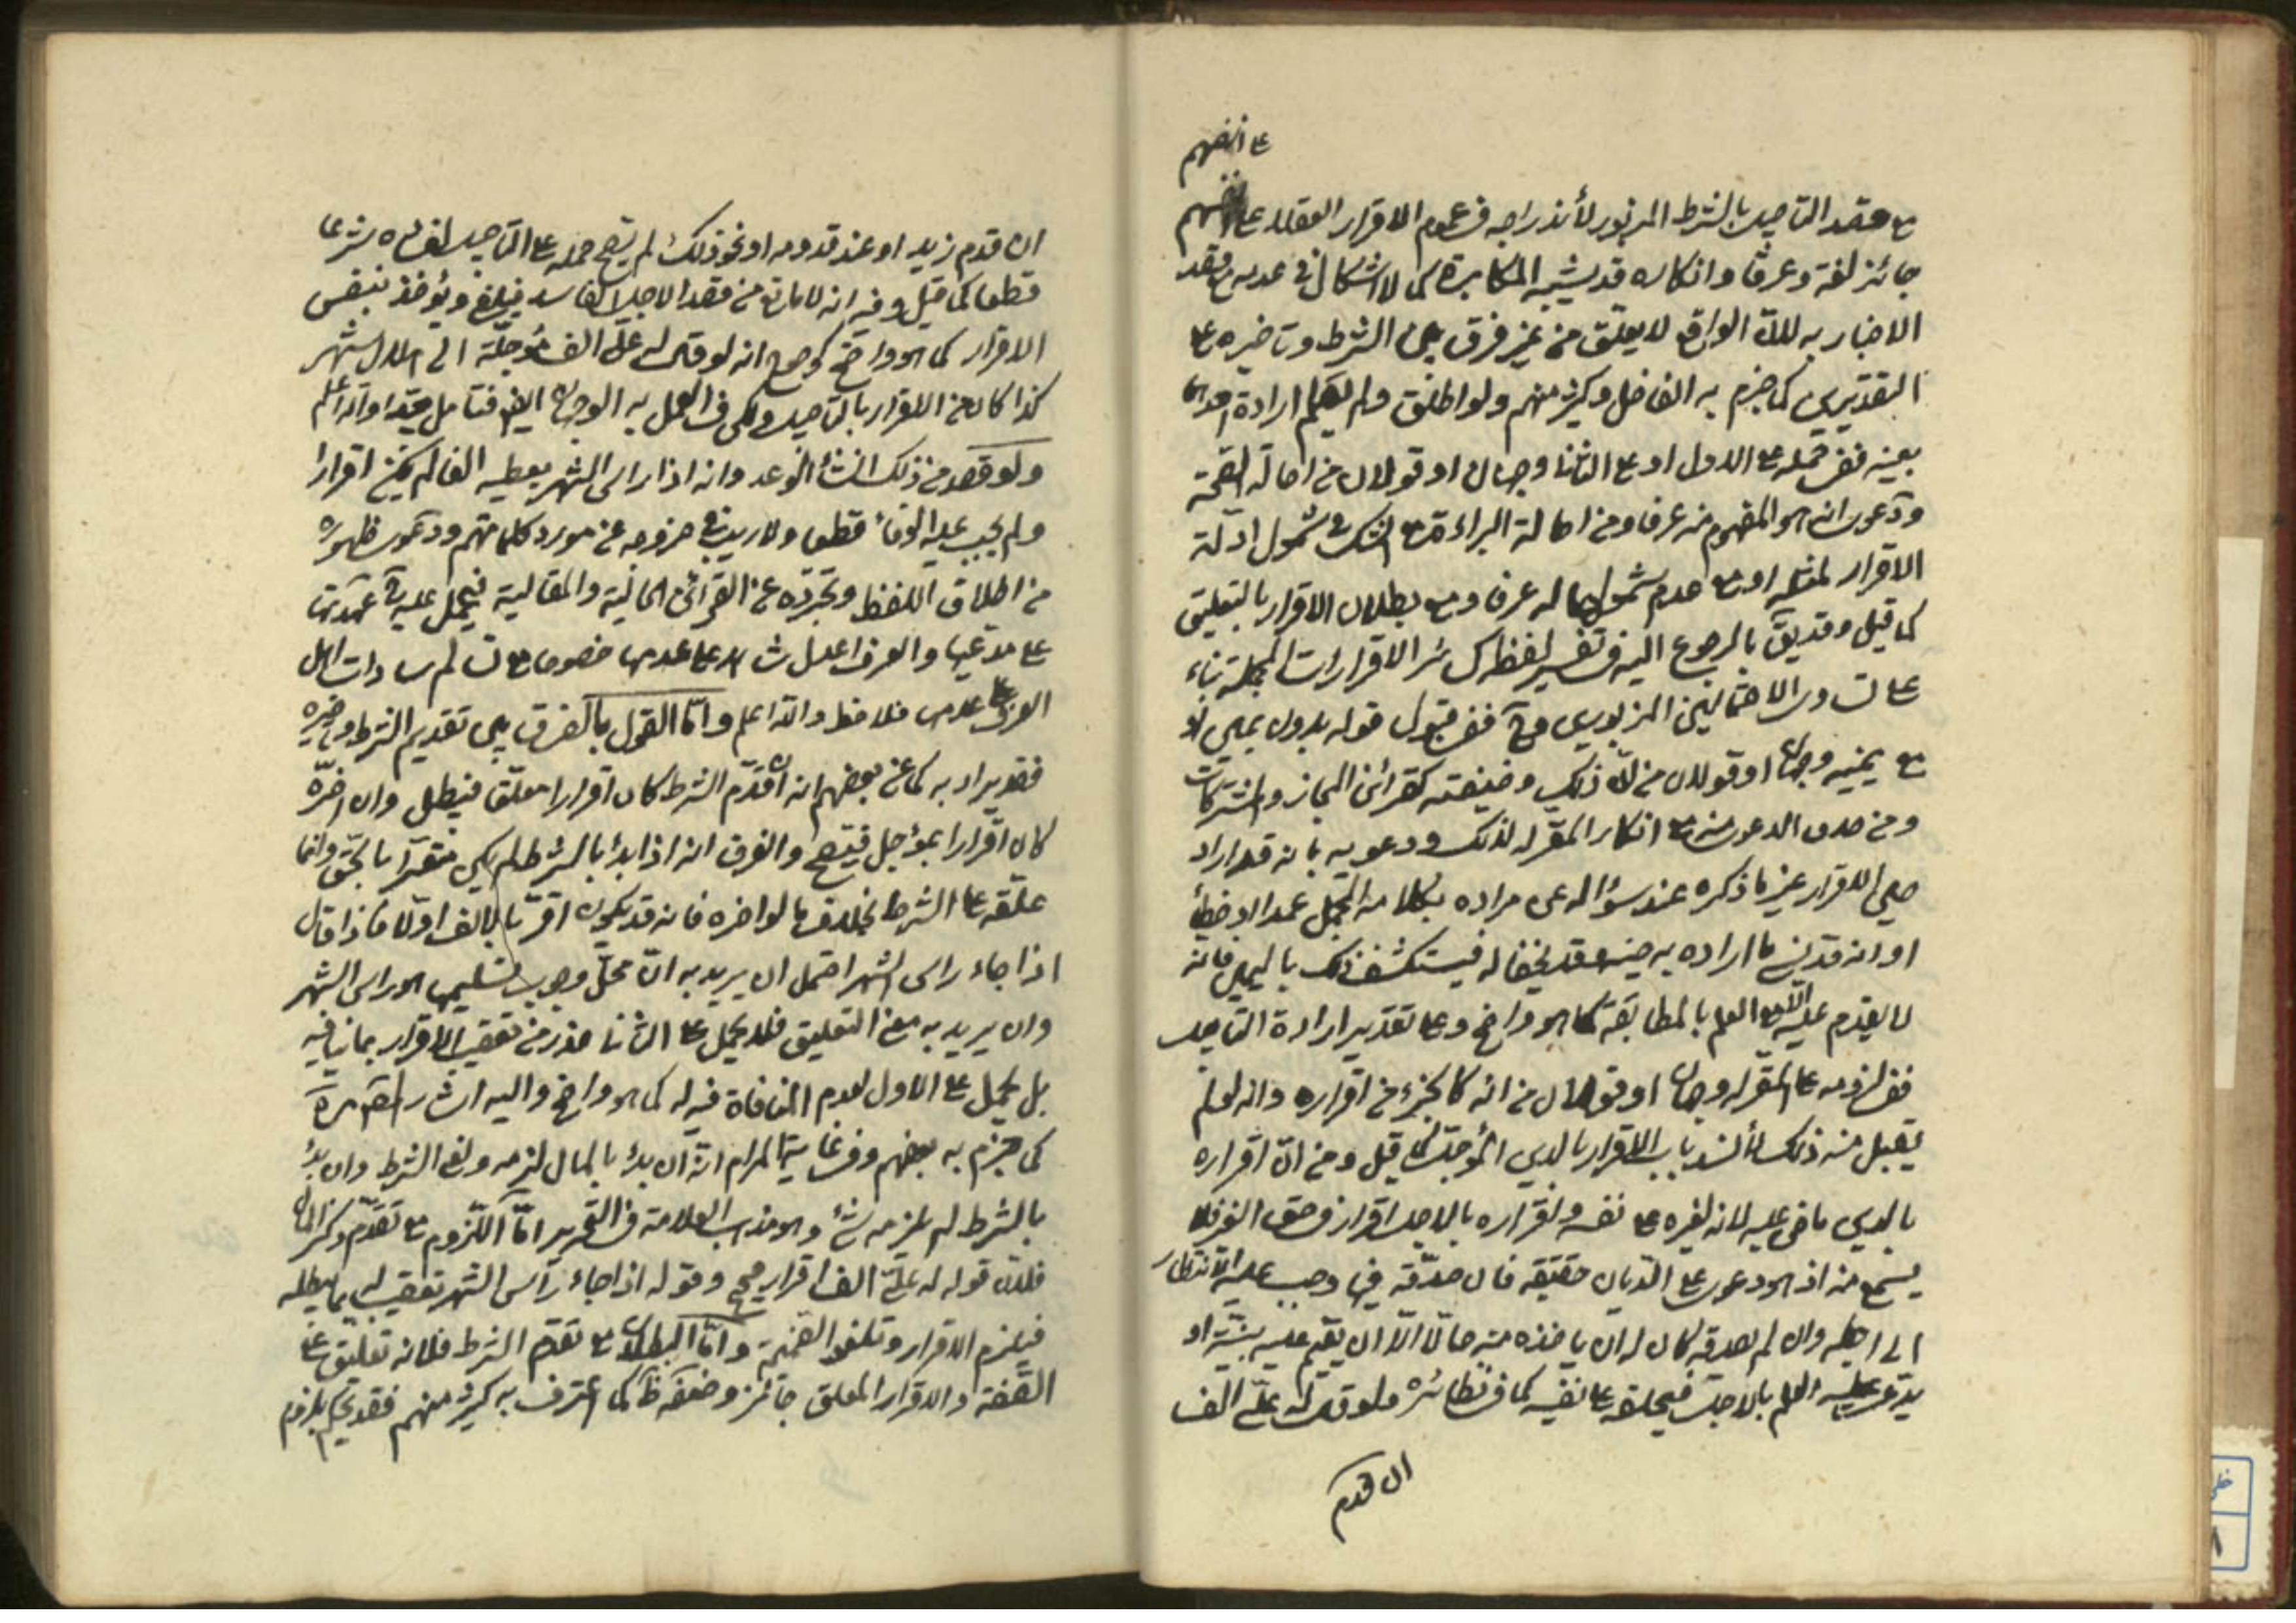 على انفسهم
مع قصد التاجيل بالشرط المزبور لأندراجه في عموم الاقرار العقلاء على انفسهم
جائز لغة وعرفا وانكاره قد يشبه المكابرة كما لا اشكال في عدمه مع قصد
الاخبار به لان الواقع لا يعلق من غير فرق بين الشرط وتاخيره على
التقديرين كما جزم به الفاضل وكثير منهم ولو اطلق ولم يعلم ارادة احدهما
بعينه ففي حمله على الاول او على الثاني وجهان او قولان من اصالة الصحة
ودعوى انه هو المفهوم منه عرفا ومن اصالة البراءة مع الشك في شمول ادلة
الاقرار لمثله او مع عدم شمولها له عرفا ومع بطلان الاقرار بالتعليق
كما قيل وقد يق بالرجوع اليه في تفسير لفظه كسائر الاقرارات المجملة بناء
على تساوى الاحتمالين المزبورين وح ففي قبول قوله بدون يمين او
مع يمينه وجهان او قولان من ان ذلك وضيفته كقرائن المجاز والمشتركات
ومن صدق الدعوى منه مع انكار المقر له لذلك ودعويه بانه قد اراد
حين الاقرار غير ما ذكره عند سؤاله عن مراده بكلامه المجمل عمدا او خطأ
او انه قد نسي ما اراده به حينه وقد يخفا له فيستكشف ذلك باليمين فانه
لا يقدم عليه الا مع العلم بالمطابقة كما هو واضح وعلى تقدير ارادة التاجيل
ففي لزومه على المقر له وجهان او قولان من انه كالجزء من اقراره وانه لو لم
يقبل منه ذلك لأنسد باب الاقرار بالدين المؤجل كما قيل ومن ان اقراره
بالدين ماض عليه لانه لغيره على نفسه واقراره بالاجل اقرار في حق الغير فلا
يسمع منه اذ هو دعوى على الديان حقيقة فان صدقه فيها وجب عليه الانتظار
الى اجله وان لم يصدقه كان له ان ياخذه منه حالا الا ان يقيم عليه بينة او
يدعى عليه العلم بالاجل فيحلفه على نفيه كما في نظائره ولو قال له علي الف
ان قدم
ان قدم زيد او عند قدومه او نحو ذلك لم يصح حمله على التاجيل لفساده شرعا
قطعا كما قيل وفيه انه لا مانع من قصد الاجل الفاسد فيلغى ويؤخذ بنفس
الاقرار كما هو واضح كوضوح انه لو قال له علي الف مؤجلة الى هلال شهر
كذا كان من الاقرار بالتاجيل ولكن في العمل به الوجهان ايضا فتامل جيدا والله اعلم
ولو قصد من ذلك انشاء الوعد وانه اذا راى الشهر يعطيه الفا لم يكن اقرارا
ولم يجب عليه الوفاء قطعا ولا ريب في خروجه عن مورد كلماتهم ودعوى ظهوره
من اطلاق اللفظ وتجرده عن القرائن الحالية والمقالية فيحمل عليه في عهدتها
على مدعيها والعرف اعدل شاهد على عدمها خصوصا مع تسالم سادات اهل
العرف على عدمها فلاحظ والله اعلم واما القول بالفرق بين تقديم الشرط وتاخيره
فقد يراد به كما عن بعضهم انه ان قدم الشرط كان اقرارا معلقا فيبطل وان اخره
كان اقرارا بمؤجل فيصح والفرق انه اذا بدأ بالشرط لم يكن مقرا بالحق وانما
علقه على الشرط بخلاف ما لو اخره فانه قد يكون اقر بالالف اولا فاذا قال
اذا جاء راس الشهر احتمل ان يريد به ان محل وجوب تسليمها هو راس الشهر
وان يريد به معنى التعليق فلا يحمل على الثاني حذرا من تعقيب الاقرار بما ينافيه
بل يحمل على الاول لعدم المنافاة فيه له كما هو واضح واليه اشار
كما جزم به بعضهم وفي غاية المرام انه ان بدء بالمال لزمه ولغى الشرط وان بدء
بالشرط لم يلزمه شئ وهو مذهب العلامة في التحرير اما اللزوم مع تقدم ذكر المال
فلان قوله له علي الف اقرار صحيح وقوله اذا جاء رأس الشهر تعقيب له بما يبطله
فيلزم الاقرار وتلغو الضميمة واما البطلان مع تقدم الشرط فلانه تعليق على
الصفة والاقرار المعلق جائز وضعفه ظ كما اعترف به كثير منهم فقد يحكم بلزوم